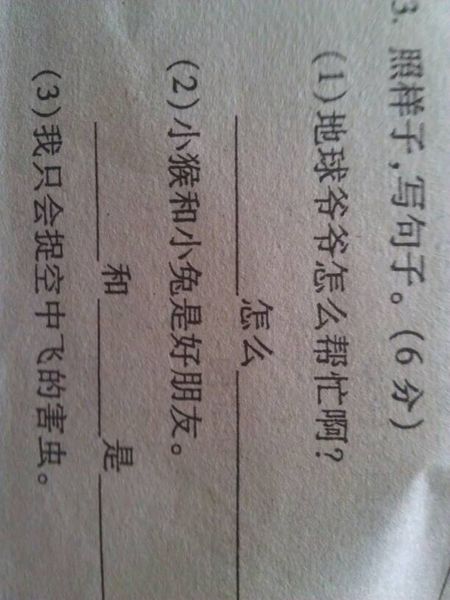 3. 照样子,写句子。(6分)
(1)地球爷爷怎么帮忙啊?
怎么
(2)小猴和小兔是好朋友。
和 是
(3)我只会捉空中飞的害虫。